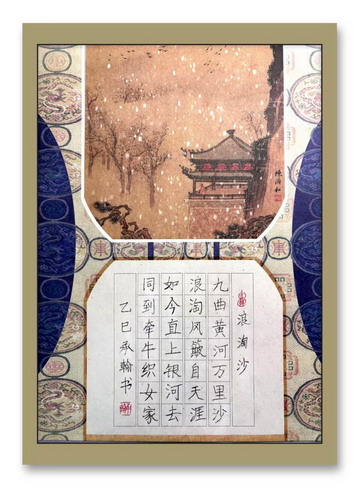 浪淘沙
九曲黄河万里沙
浪淘风簸自天涯
如今直上银河去
同到牵牛织女家
乙巳承翰书